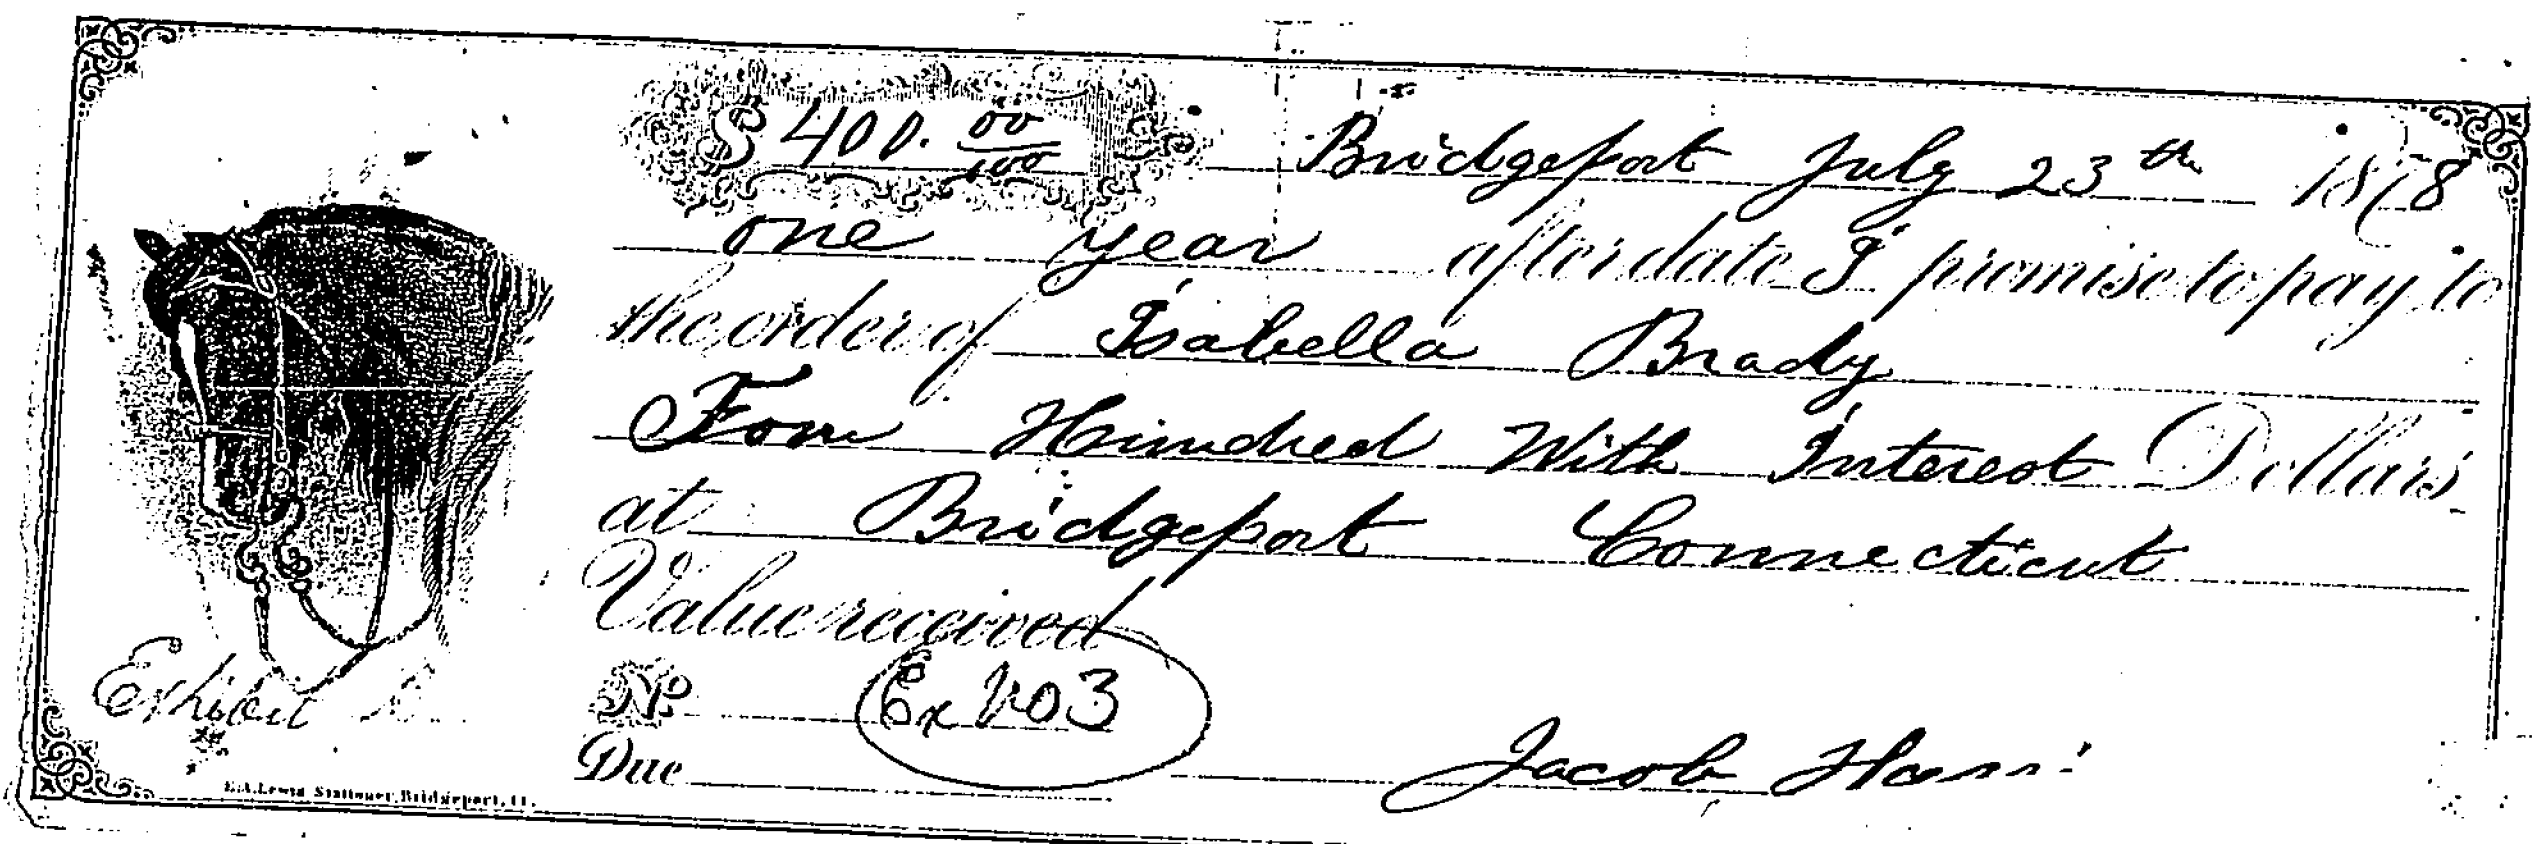 $ 400. 00/100 Bridgeport July 23th 1878
one year after date I promise to pay to
the order of Isabella Brady
Four Hundred With Interest Dollars
at Bridgeport Connecticut
Value received
No Ex 103
Due Jacob
Exhibit
Lewis Stationer, Bridgeport, Ct.